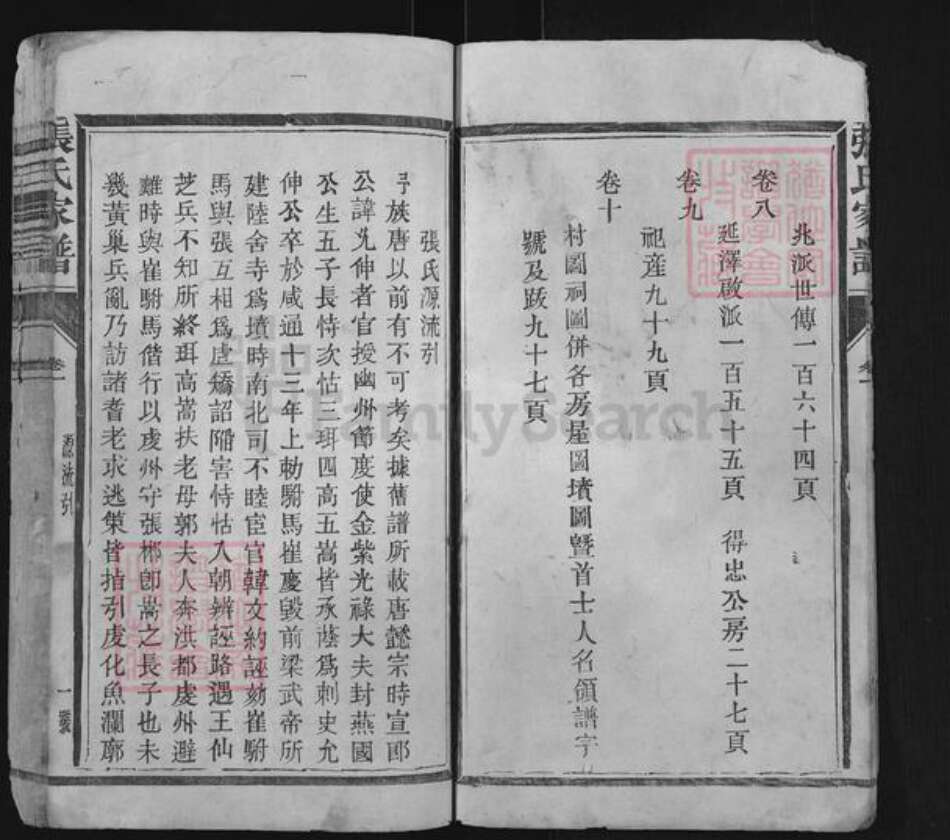 卷八
兆派世傳一百六十四頁
延澤啟派一百五十五頁 得忠公房二十七頁
卷九
祀產九十九頁
卷十
村圖祠圖併各房屋圖墳圖暨首士人名領譜字
號及跋九十七頁
張氏家譜
卷一
源流引
一
張氏源流引
族唐以前有不可考矣據舊譜所載唐懿宗時宣郎
公諱允伸者官授幽州節度使金紫光祿大夫封燕國
公生五子長恃次怙三珥四高五嵩皆承蔭為刺史允
伸公卒於咸通十三年上勅駙馬崔慶毀前梁武帝所
建陸舍寺為墳時南北司不睦宦官韓文約誣劾崔駙
馬與張互相為虐矯詔陷害恃怙入朝辨誣路遇王仙
芝兵不知所終珥高嵩扶老母郭夫人奔洪都虔州避
難時與崔駙馬偕行以虔州守張郴卽嵩之長子也未
幾黃巢兵亂乃訪諸耆老求逃策皆指引虔化魚瀾廓
FamilySearch